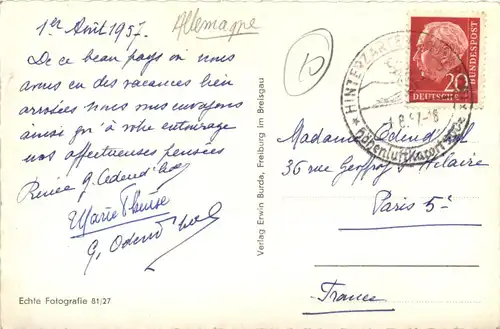 1er Août 1957.
Allemagne
De ce beau pays où nous
avons eu des vacances bien
arrosées nous vous envoyons
ainsi qu'à votre entourage
nos affectueuses pensées
Renée G.
Marie Thérèse
G. Odend'hal
Echte Fotografie 81/27
Verlag Erwin Burda, Freiburg im Breisgau
HINTERZARTEN
Höhenluftkurort
20
DEUTSCHE
BUNDESPOST
Madame Odend'hal
36 rue Geoffroy St Hilaire
Paris 5e
France